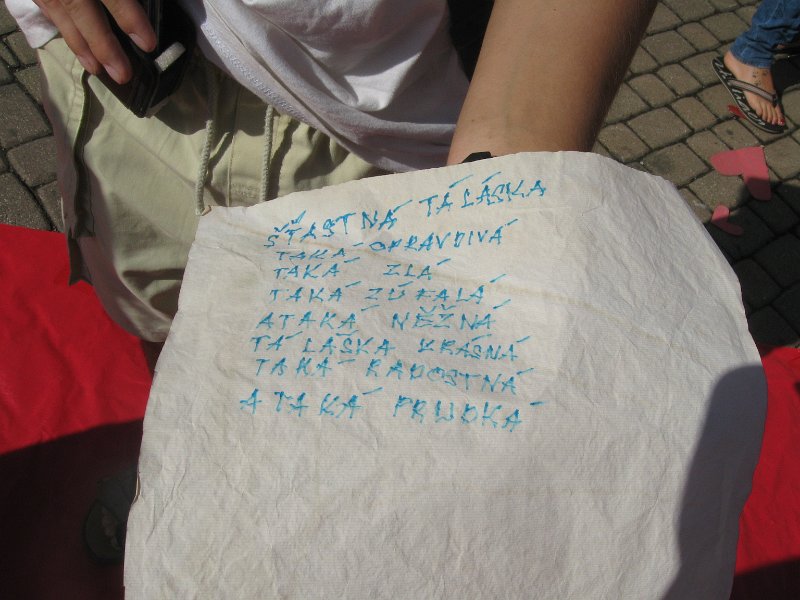 ŠŤASTNÁ TÁ LÁSKA
TAKÁ OPRAVDIVÁ
TAKÁ ZLÁ
TAKÁ ZÚFALÁ
A TAKÁ NĚŽNÁ
TÁ LÁSKA KRÁSNÁ
TAKÁ RADOSTNÁ
A TAKÁ PRUDKÁ